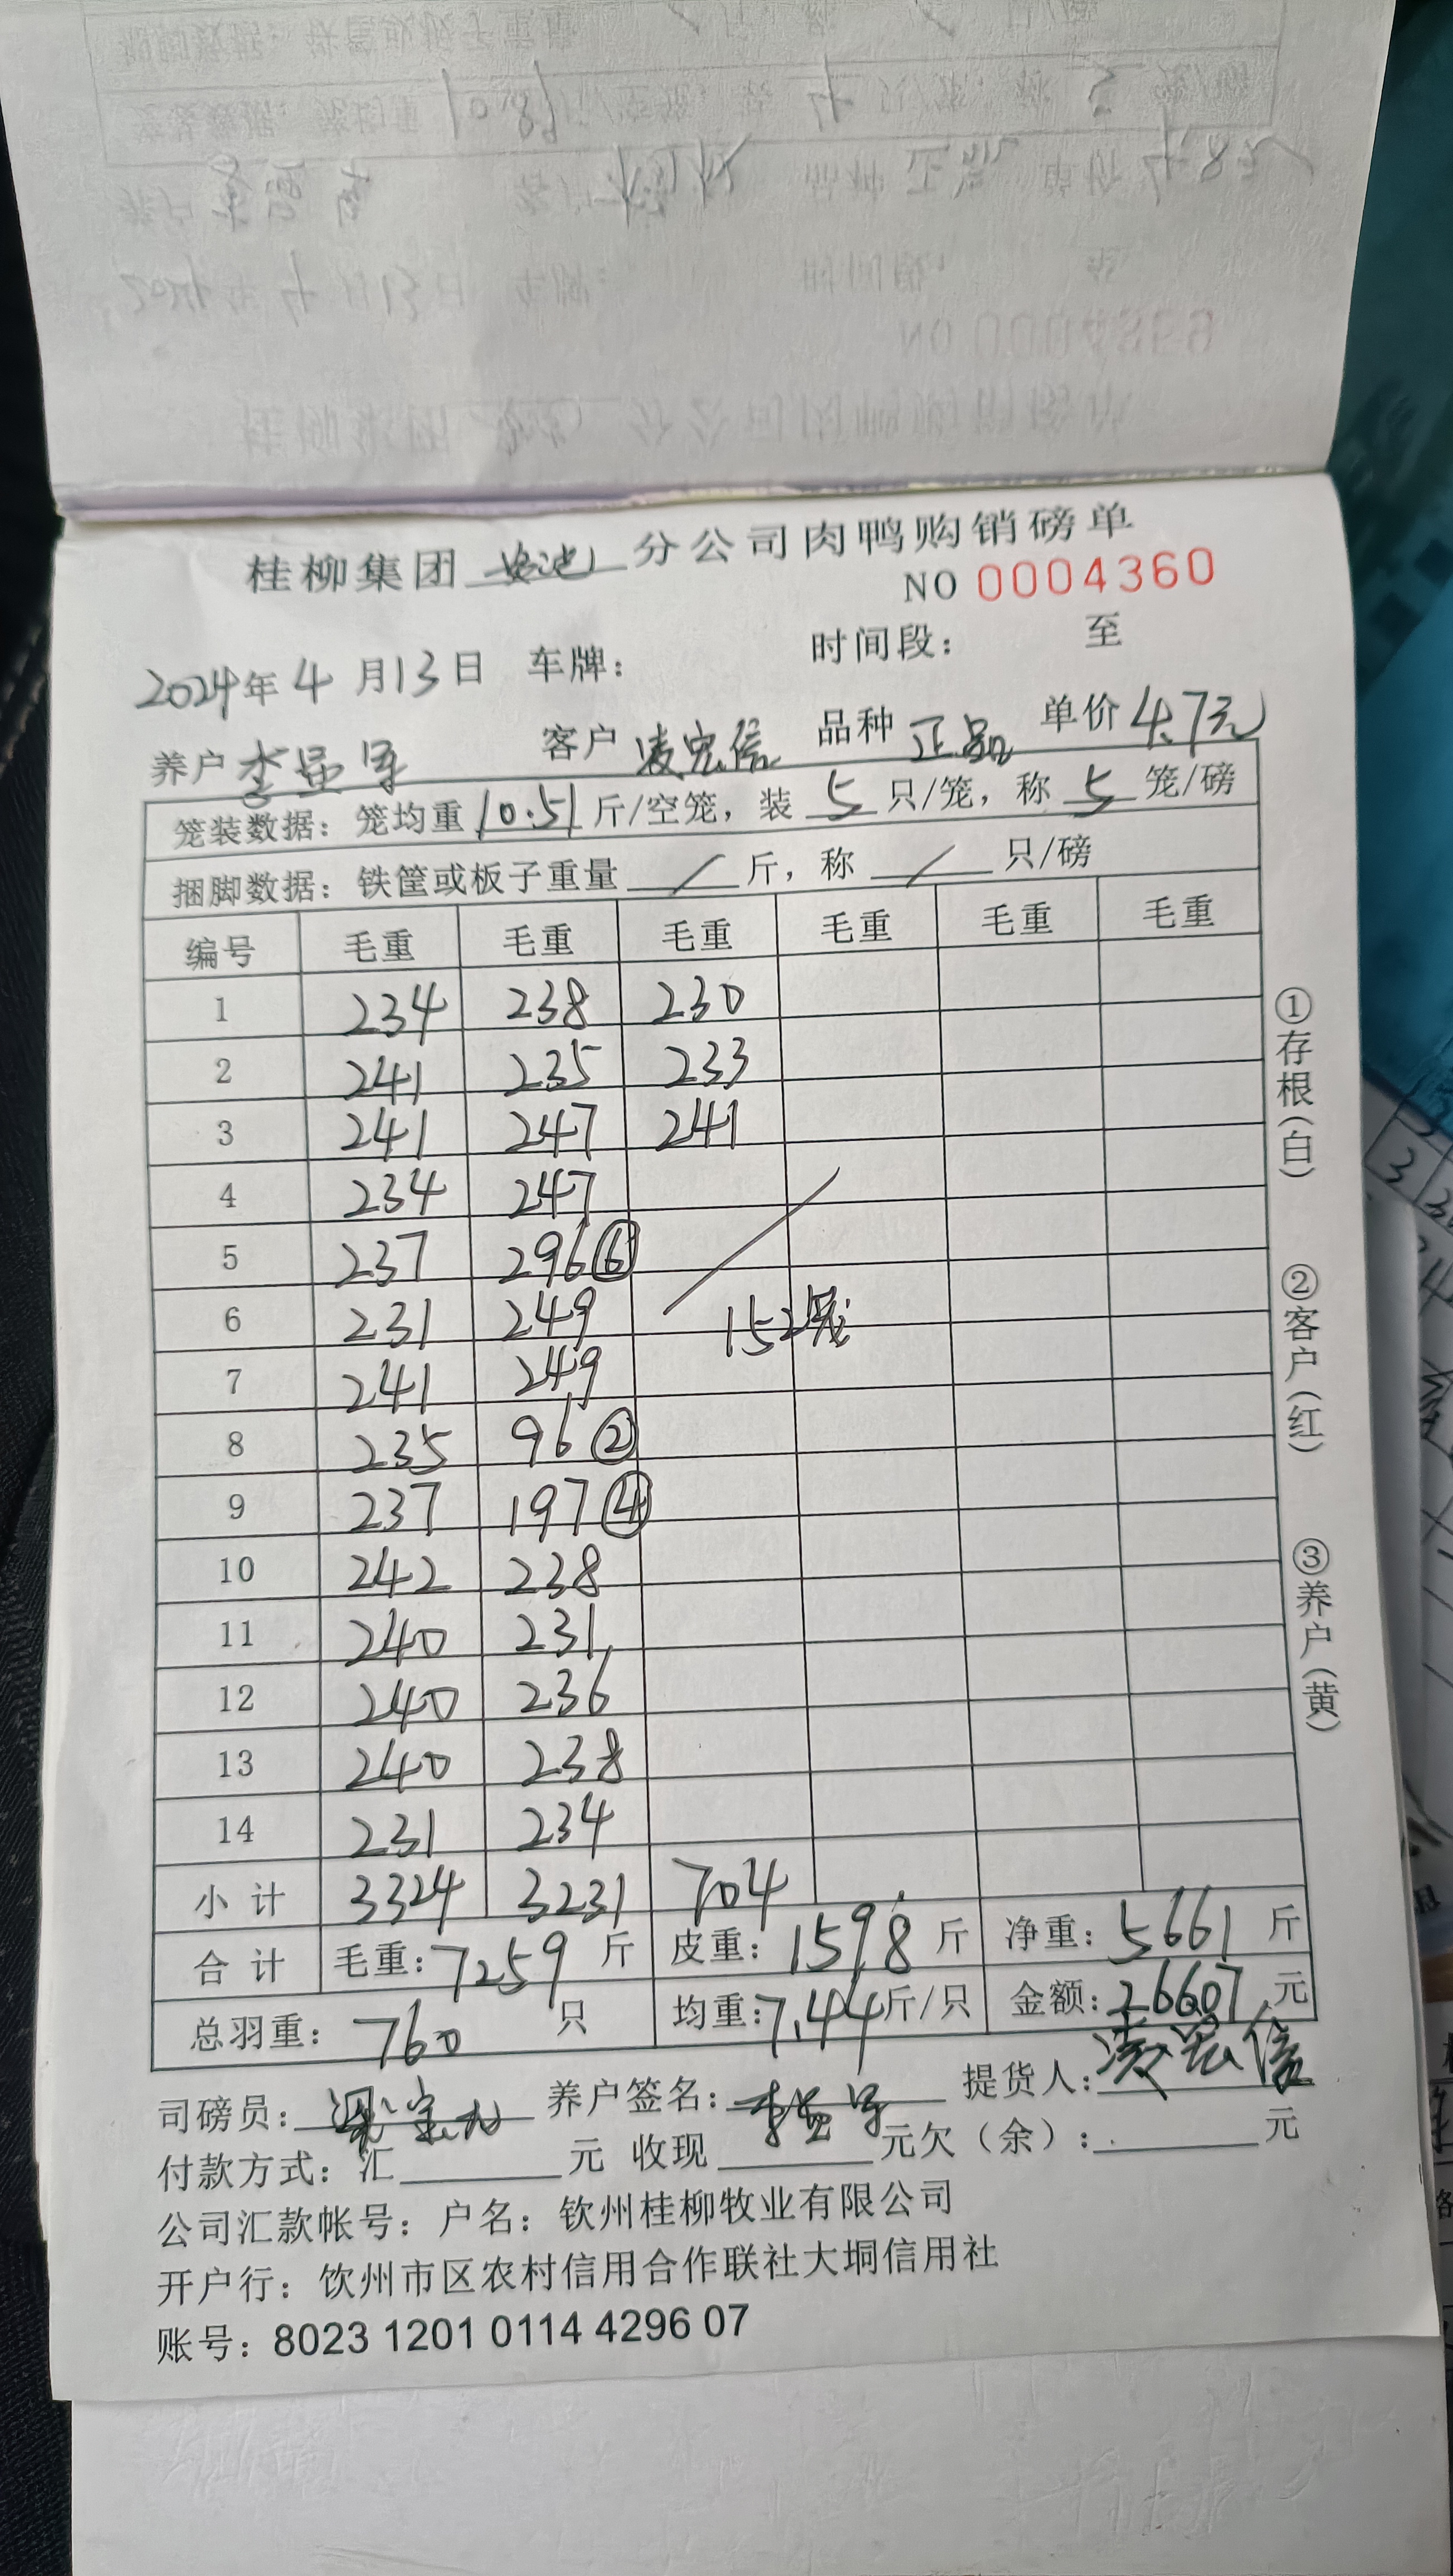 桂柳集团 分公司肉鸭购销磅单
NO 0004360
2024年4月13日 车牌： 时间段： 至
养户 李 军 客户 凌宏信 品种 正品 单价 4.7元
笼装数据：笼均重 10.51 斤/空笼，装 5 只/笼，称 5 笼/磅
捆脚数据：铁筐或板子重量 / 斤，称 / 只/磅
编号 毛重 毛重 毛重 毛重 毛重 毛重
1 234 238 230
2 241 235 233
3 241 247 241
4 234 247
5 237 296⑥
6 231 249 152笼
7 241 249
8 235 96②
9 237 197④
10 242 238
11 240 231
12 240 236
13 240 238
14 231 234
小计 3324 3231 704
合计 毛重：7259 斤 皮重：1598 斤 净重：5661 斤
总羽重：760 只 均重：7.44斤/只 金额：26607 元
司磅员： 养户签名： 提货人：凌宏信
付款方式：汇 元 收现 元欠（余）： 元
公司汇款帐号：户名：钦州桂柳牧业有限公司
开户行：饮州市区农村信用合作联社大垌信用社
账号：8023 1201 0114 4296 07
①存根（白）
②客户（红）
③养户（黄）